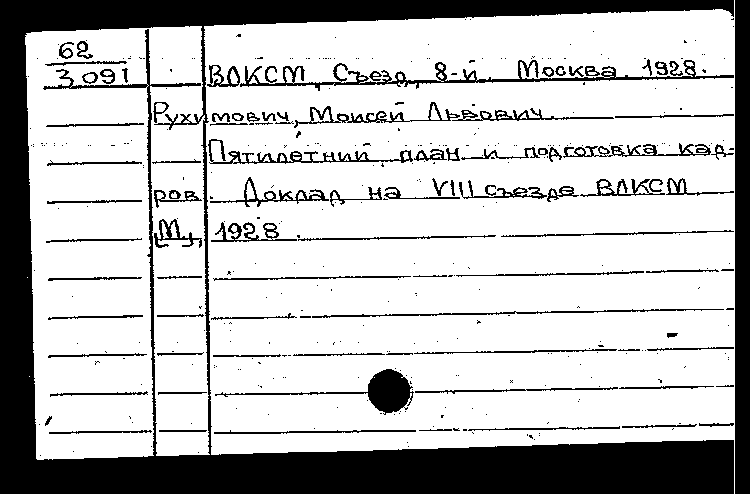 62
3091 ВЛКСМ, Съезд, 8-й. Москва. 1928.
Рухимович, Моисей Львович.
Пятилетний план и подготовка кад-
ров. Доклад на VIII съезде ВЛКСМ
[М.], 1928.